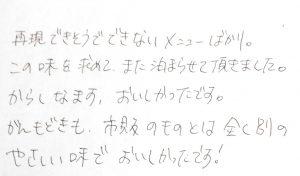 再現できそうでできないメニューばかり。
この味を求めて、また泊まらせて頂きました。
からしなます、おいしかったです。
がんもどきも、市販のものとは全く別の
やさしい味でおいしかったです!